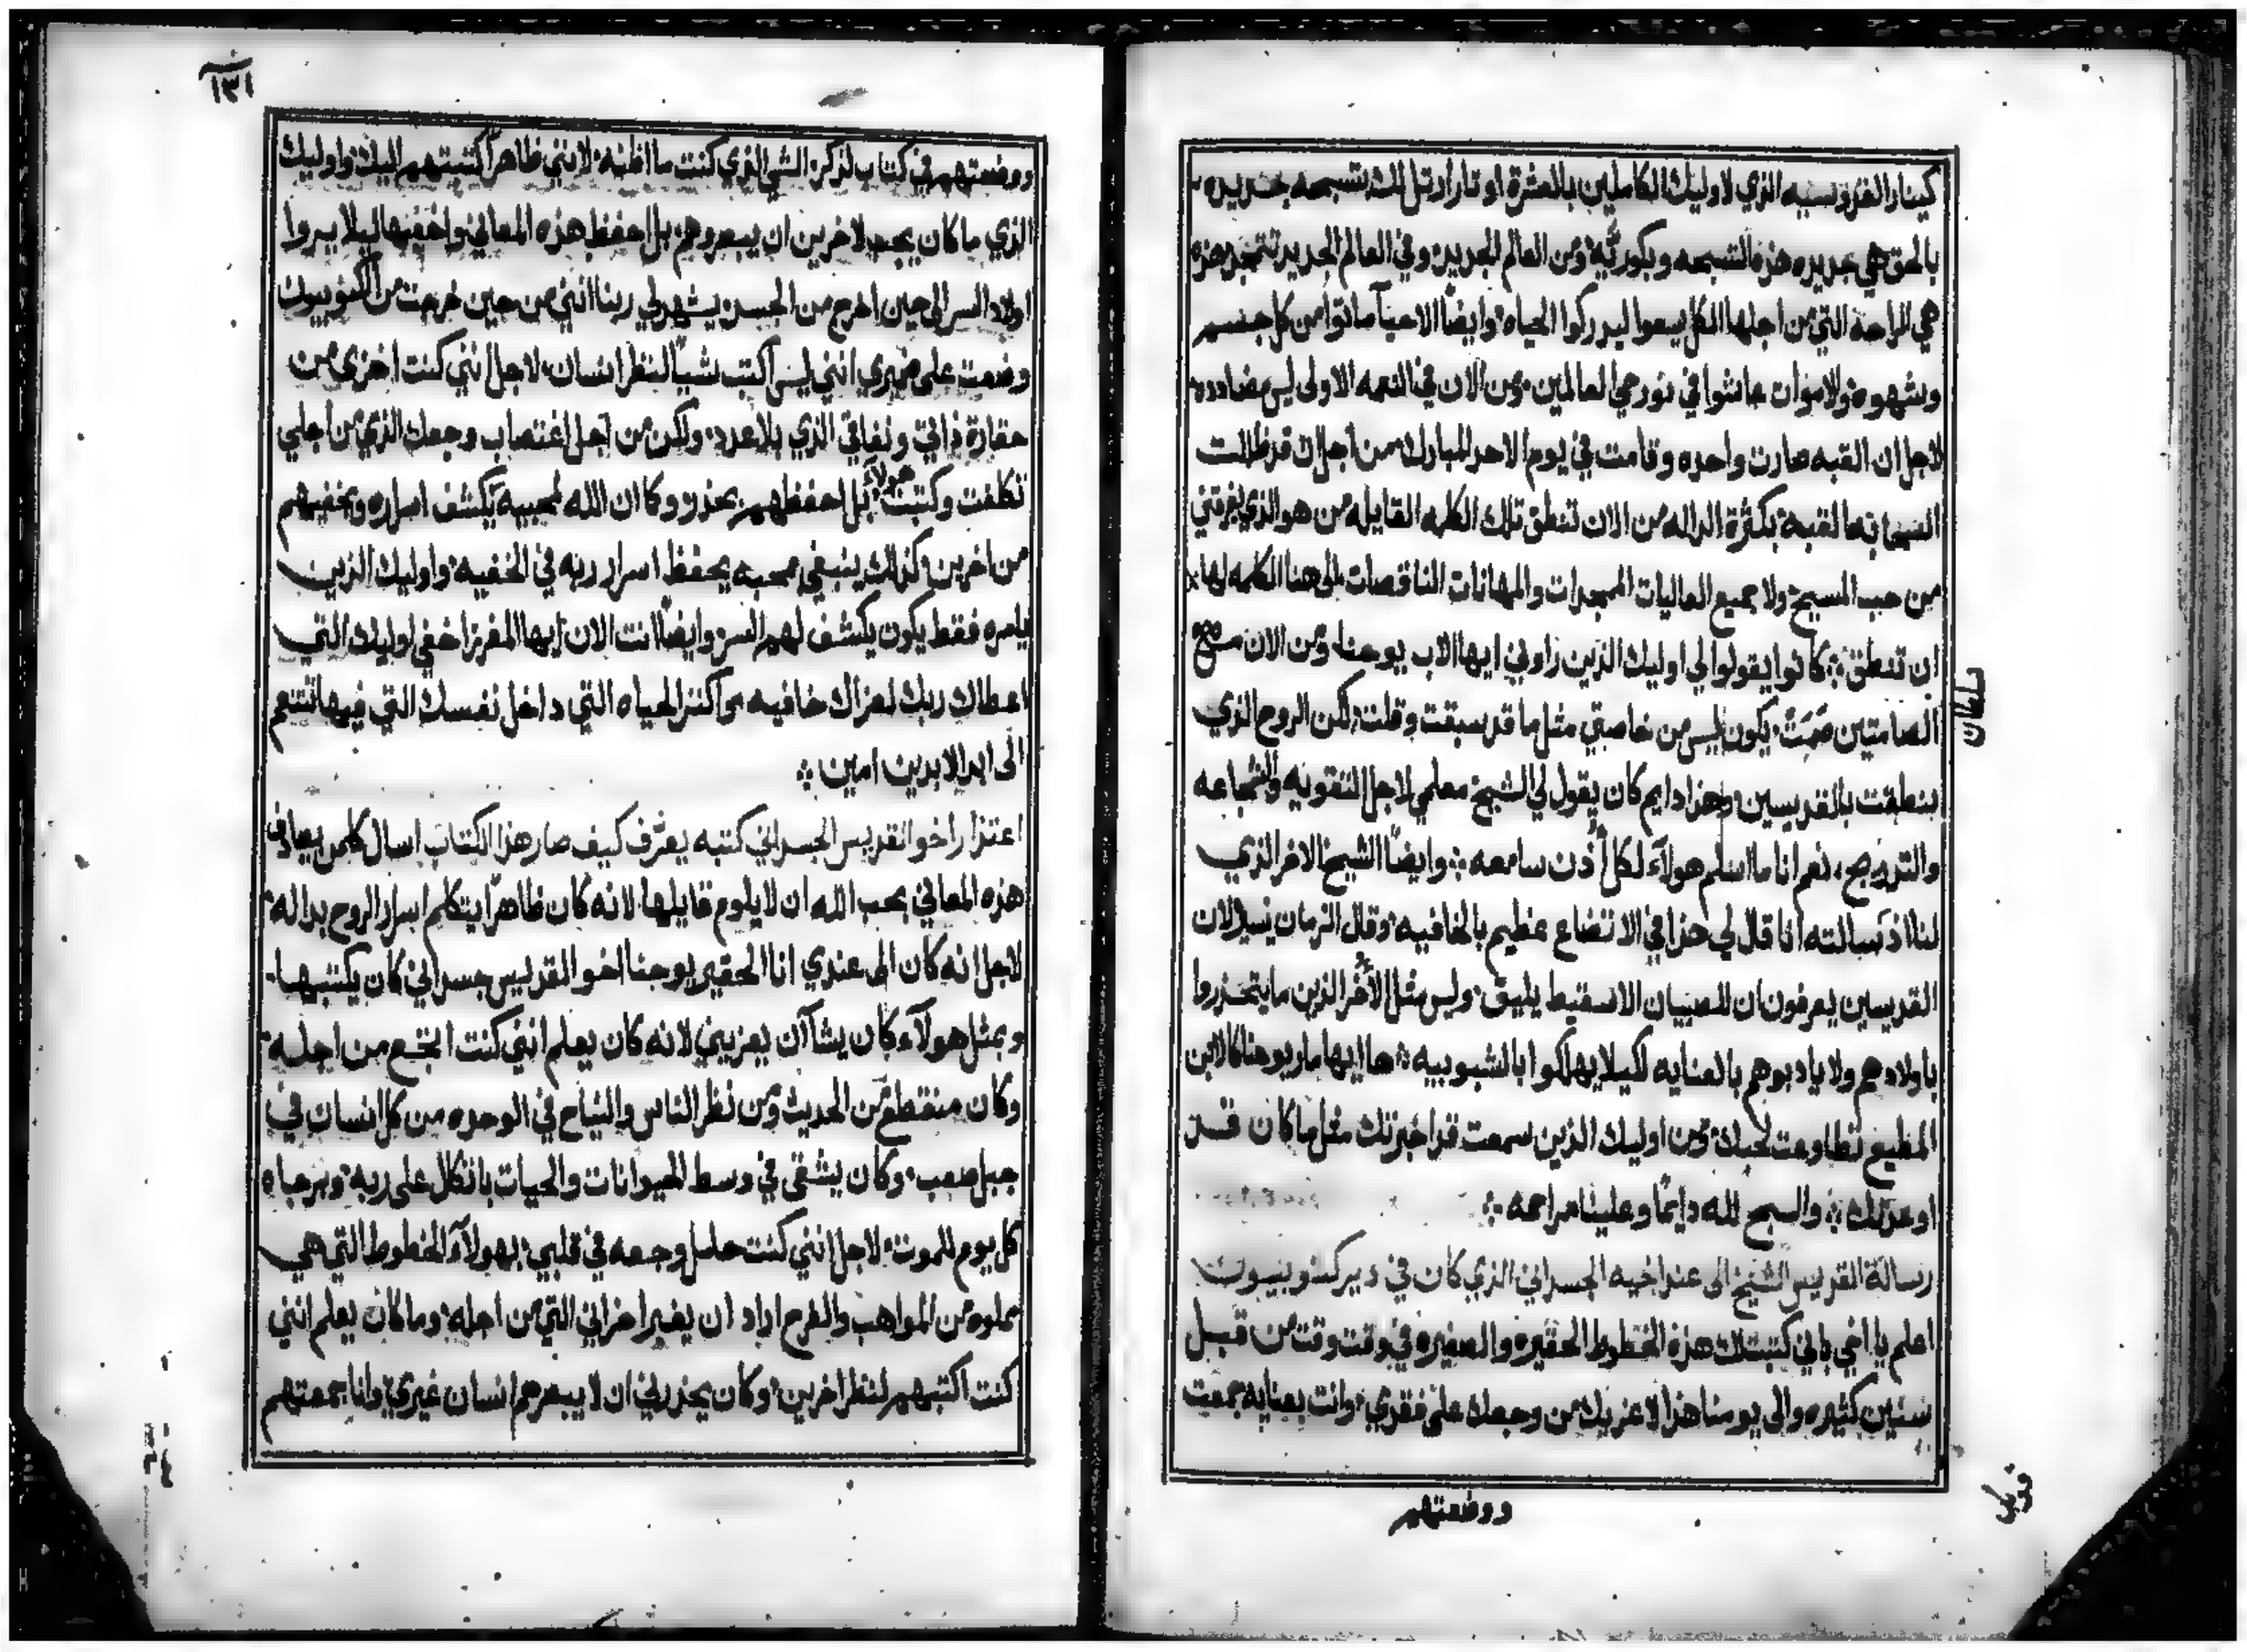 كينارالغزوسيه الذي لاوليك الكاملين بالعشرة او تارارتل لك تسبحه جديده
بالحق هي جديده هذه التسبحه وبكوريّه ومن العالم الجديد وفي العالم الجديد تتمجد هذه
هي الراحه التي من اجلها الكل يبيعوا ليدركوا الحياه وايضًا الاحيآ ماتوا من كل جنسهم
وبشهوه ولاموات عاشوا في نور محي العالمين ومن الان في النعمه الاولى ليس مضادده
لاجل ان القبه صارت واحده وقامت في يوم الاحد المبارك من اجل ان قد ظللت
الضبابه القبه بكثرة الداله من الان تنطق تلك الكلمه القايله من هو الذي يفرقني
من حب المسيح ولا جميع العاليات الممجدات والمهانات الناقصات الى هنا الكلمه لها
ان تنطق كانوا يقولوا لي اوليك الذين راوني ايها الاب يوحنا ومن الان صح
سلطان
الصامتين صَمَتُ يكون ليس من خاصتي مثل ما قد سبقت وقلت لكن الروح الذي
ينطقت بالقديسين وهذا دايم كان يقول لي الشيخ معلمي لاجل التقويه والشجاعه
والترويح نعم انا ما اسلم هولآء لكل أُذن سامعه وايضًا الشيخ الاخر الذي
لنا اذ سالته انا قال لي هذا في الاتضاع عظيم بالخافيه وقال الزمان يسير لان
القديسين يعرفون ان للصبيان الاسقيط يليق وليس مثل الأُخَر الذين ما يتحذروا
باولادهم ولا يادبوهم بالعنايه لكيلا يهلكوا بالشبوبيه ها ايها مار يوحنا كالابن
المطيع تطاوعت لحبك ومن اوليك الذين سمعت قد اخبرتك مثل ما كان قد
اوعدتك والسبح لله دايمًا وعلينا مراحمه
رسالة القديس الشيخ الى عند اخيه الجسداني الذي كان في دير
اعلم يا اخي باني كتبت لك هذه الخطوط الحقيره والصغيره في وقت وقت من قبل
سنين كثيره والى يومنا هذا لاعزيك من وجعك على فقري وانت بعنايه جمعت
ووضعتهم
١٣١
ووضعتهم في كتاب لذكر الشي الذي كنت ما اظنه لانني ظاهرًا كتبتهم اليك واوليك
الذي ما كان يجب لاخرين ان يبصروهم بل احفظ هذه المعاني واخفيها ليلا يبروا
اولاد السر الى حين اخرج من الجسد يشهد لي ربنا انني من حين خرجت من
وضعت على ضميري انني ليس اكتب شيًا لنظر انسان لاجل انني كنت اخزى من
حقارة ذاتي ونفاقي الذي بلا عدد ولكن من اجل اغتصاب وجعك الذي من اجلي
تكلفت وكتبت هولآء بل احفظهم بحذر وكما ان الله لمحبيه يكشف اسراره ويخفيهم
من اخرين كذلك ينبغي محبه يحفظ اسرار ربه في الخفيه واوليك الذين
يامره فقط يكون يكشف لهم السر وايضًا انت الان ايها المفرز اخفي اوليك التي
اعطاك ربك لعزاك خافيه كنز الحياه التي داخل نفسك التي فيها تتنعم
الى ابد الابدين امين
اعتذار اخو القديس الجسداني كتبه يعرّف كيف صار هذا الكتاب اسال كلمن يصادف
هذه المعاني بحب الله ان لا يلوم قايلها لانه كان ظاهرًا يتكلم اسرار الروح بداله
لاجل انه كان الى عندي انا الحقير يوحنا اخو القديس جسداني كان يكتبها
وبمثل هولآء كان يشآ ان يعزيني لانه كان يعلم انني كنت من اجله
وكان منقطع من الحديث ومن نظر الناس والنياح في الوحده من كل انسان في
جبل صعب وكان يشقى في وسط الحيوانات والحيات باتكال على ربه
كل يوم للموت لاجل انني كنت حامل وجعه في قلبي بهولآء الخطوط التي هي
مملوه من المواهب والفرح اراد ان يغير احزاني التي من اجله وما كان يعلم انني
كنت اكتبهم لنظر اخرين وكان يحذرني ان لا يبصرهم انسان غيري وانا جمعتهم